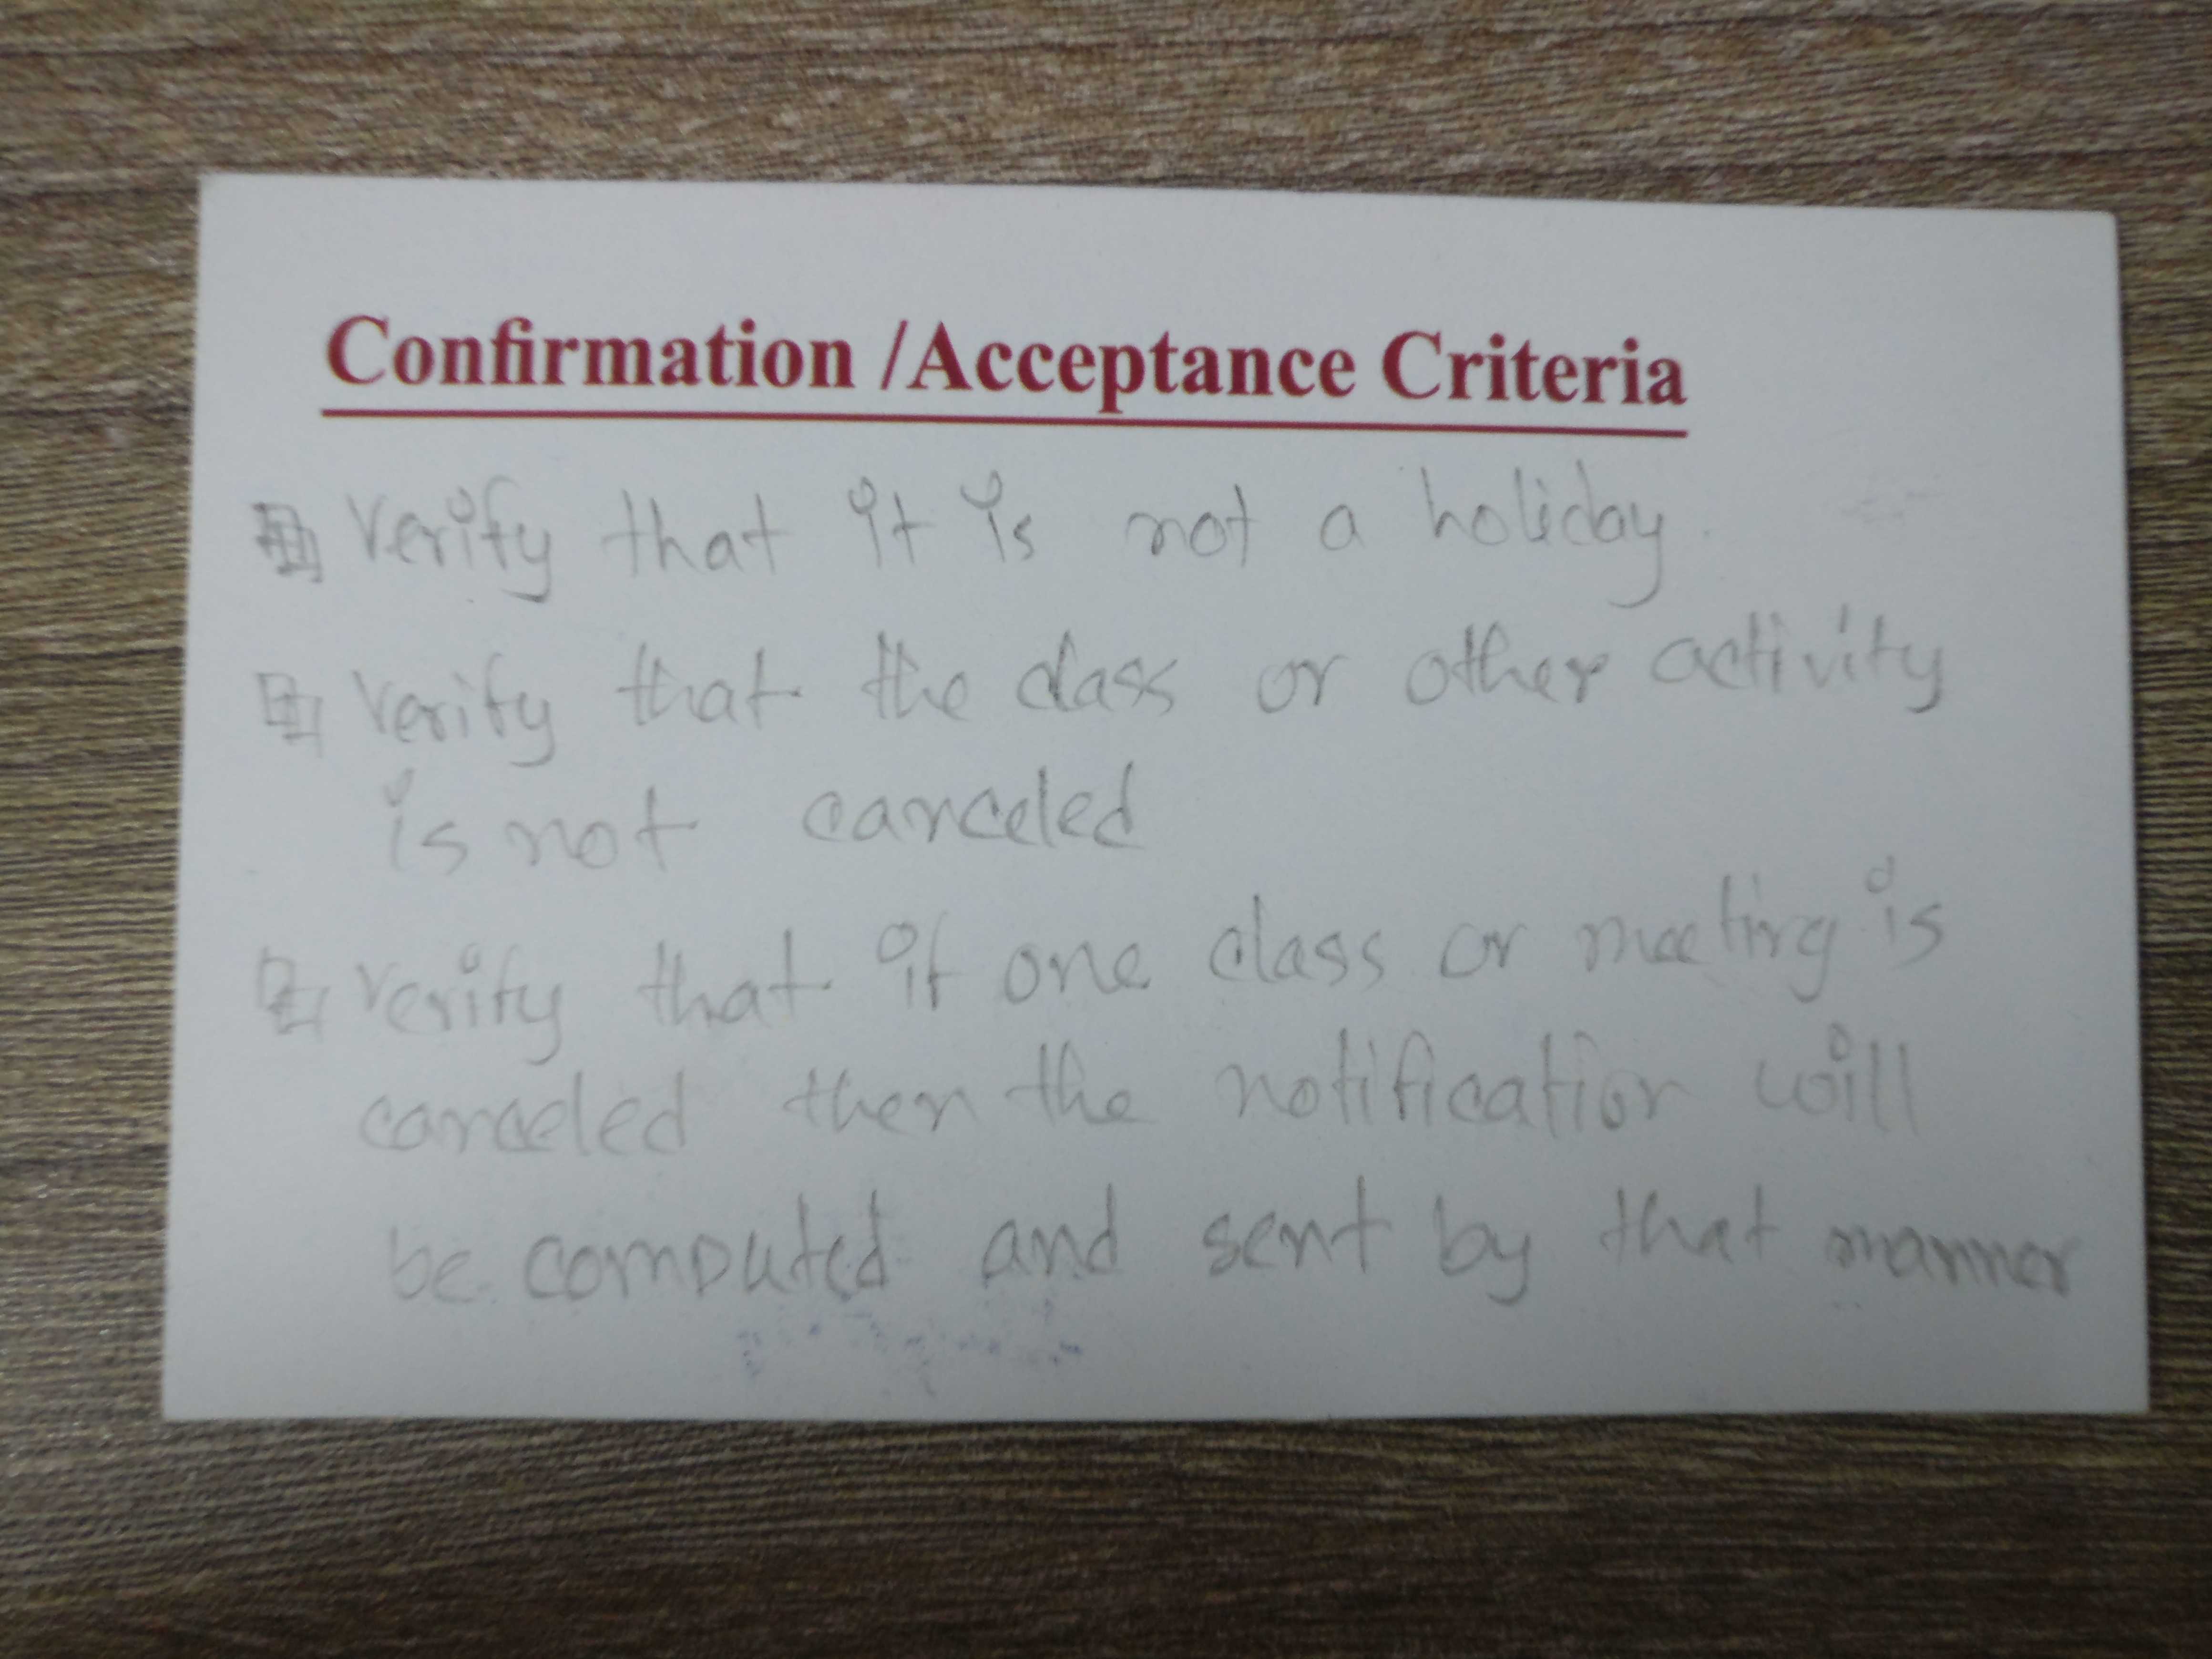 Confirmation /Acceptance Criteria
Verify that it is not a holiday.
Verify that the class or other activity
is not canceled
Verify that if one class or meeting is
canceled then the notification will
be computed and sent by that manner